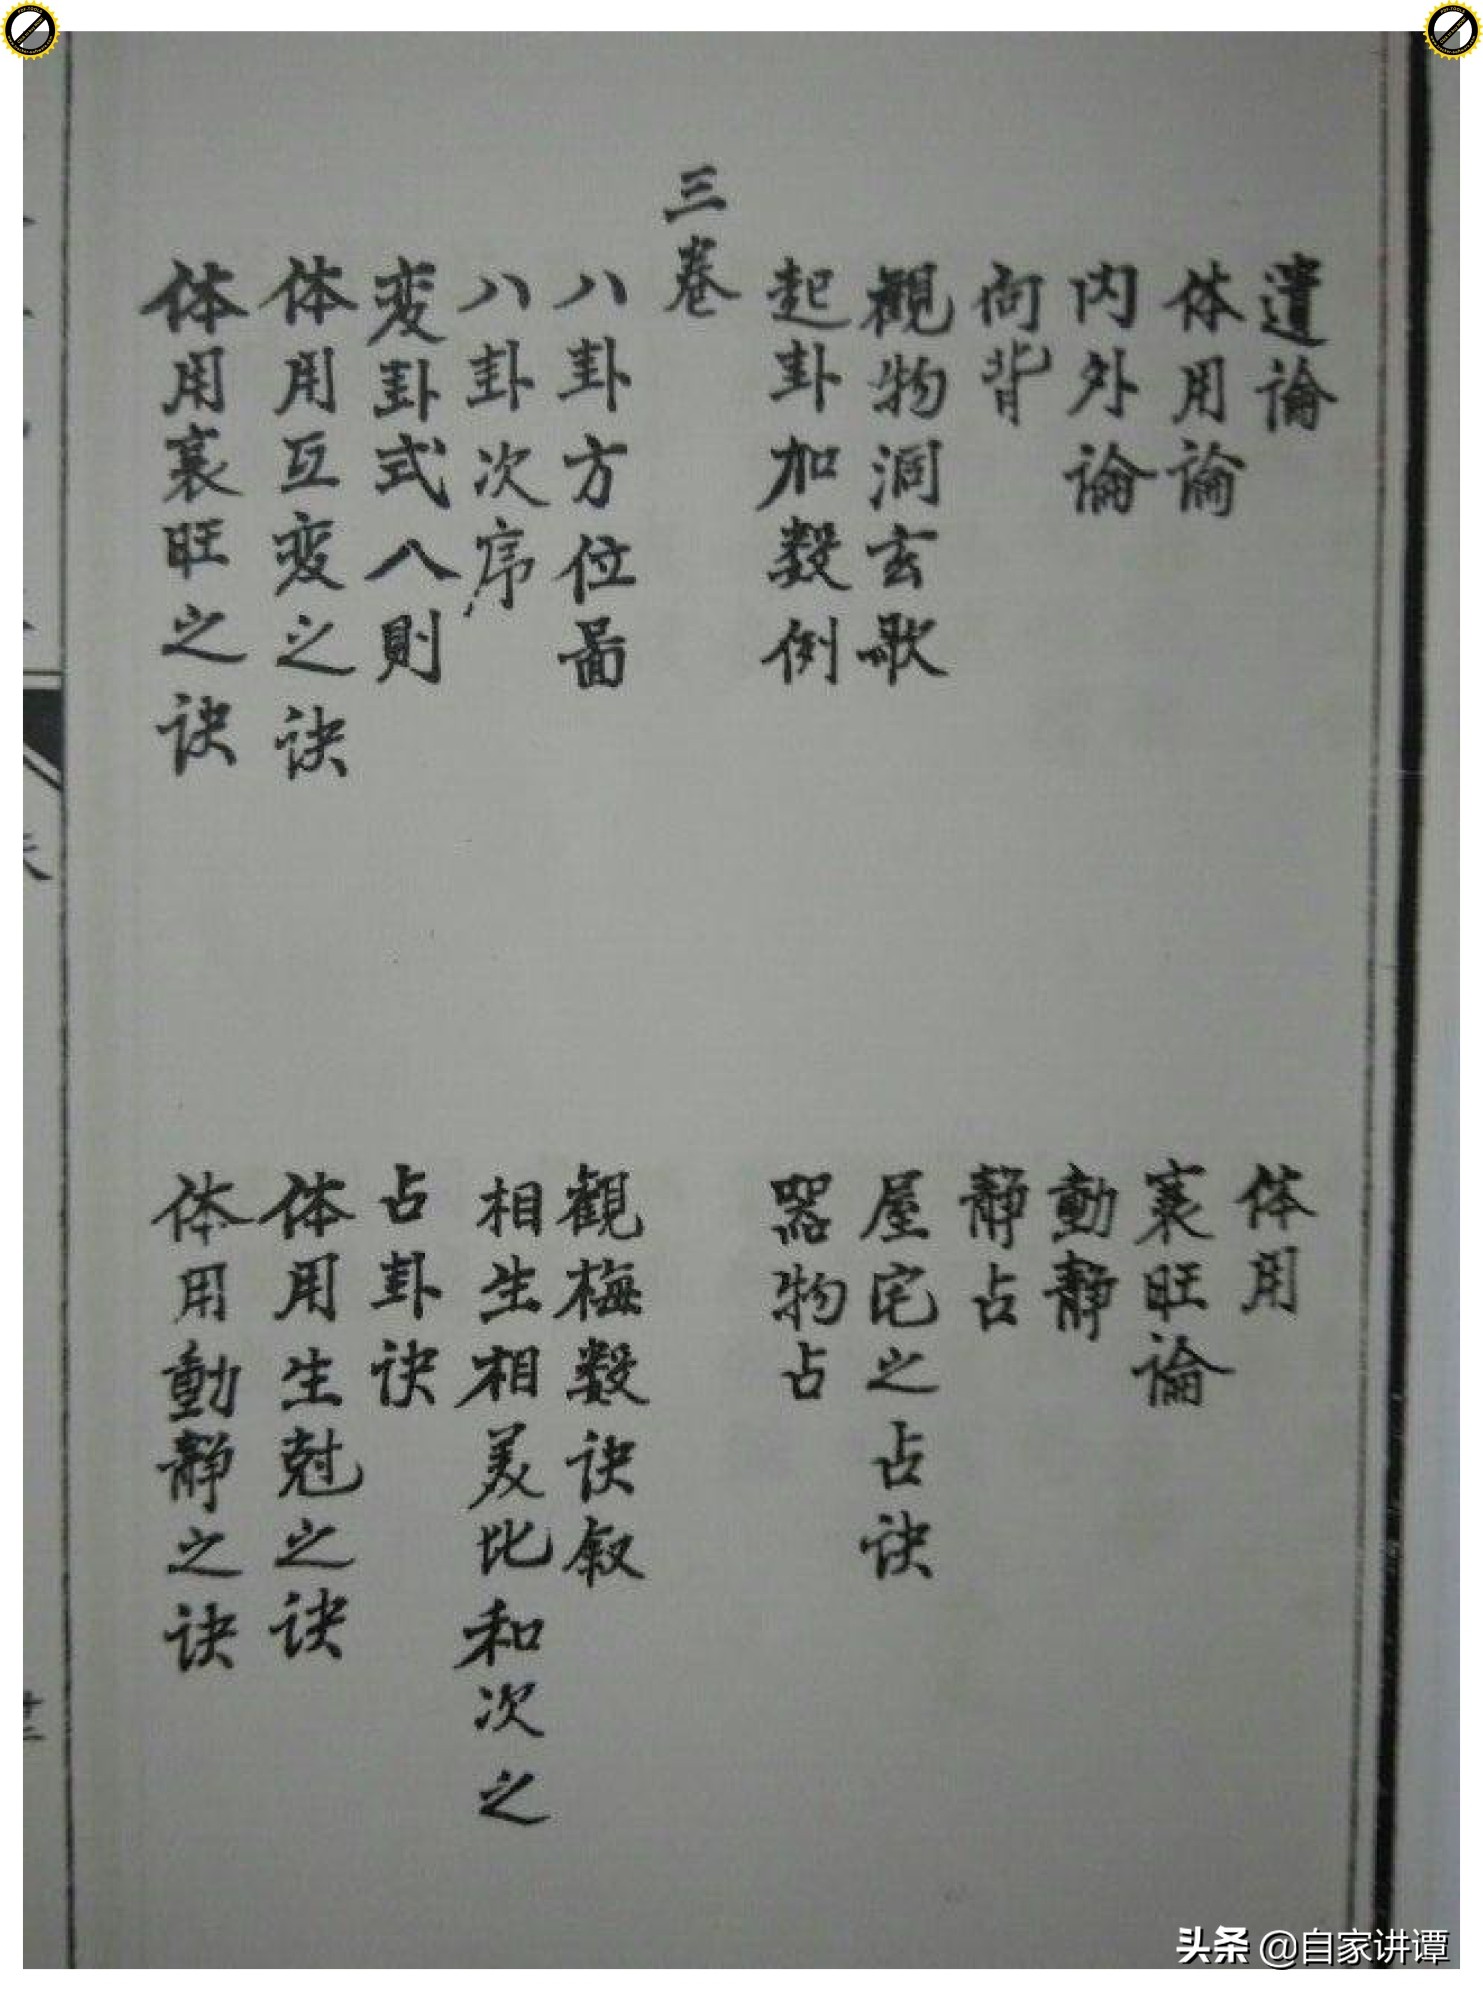 遺論
体用
体用論
衰旺論
内外論
動靜
向背
静占
觀物洞玄歌
屋宅之占诀
起卦加数例
器物占
三卷
八卦方位啚
觀梅数诀叙
八卦次序
相生相美比和次之
变卦式八則
占卦诀
体用互变之诀
体用生尅之诀
体用衰旺之诀
体用動静之诀
头条 @自家讲谭